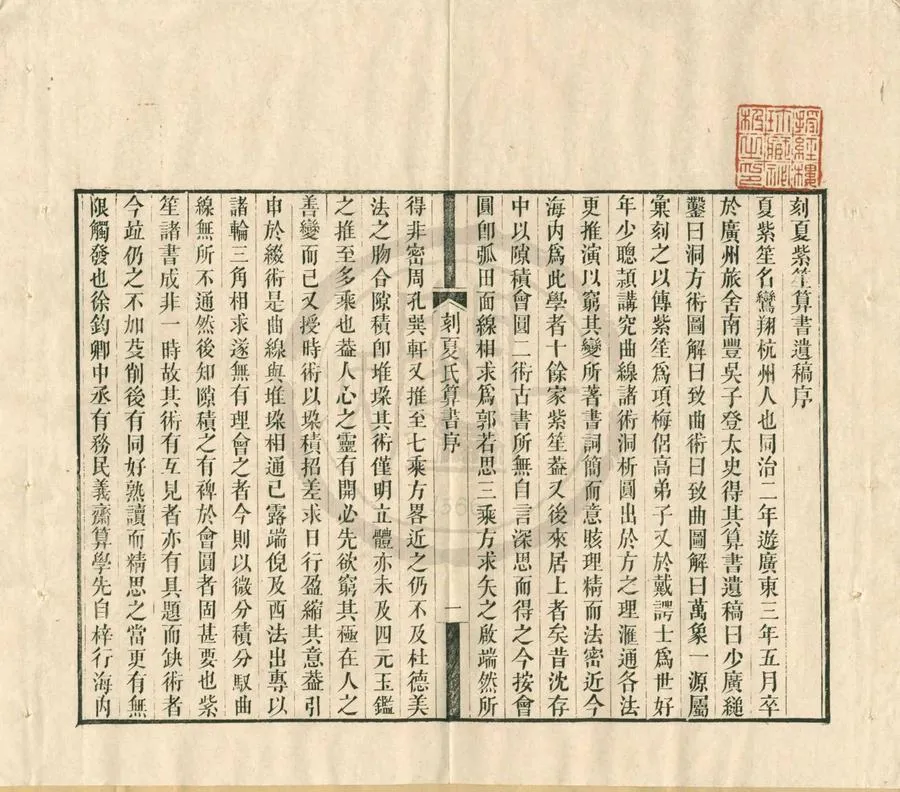 刻夏紫笙算書遺稿序
夏紫笙名鸞翔杭州人也同治二年遊廣東三年五月卒
於廣州旅舍南豐吳子登太史得其算書遺稿曰少廣縋
鑿曰洞方術圖解曰致曲術曰致曲圖解曰萬象一源屬
彙刻之以傳紫笙爲項梅侶高弟子又於戴諤士爲世好
年少聰潁講究曲線諸術洞析圓出於方之理滙通各法
更推演以窮其變所著書詞簡而意賅理精而法密近今
海內爲此學者十餘家紫笙葢又後來居上者矣昔沈存
中以隙積會圓二術古書所無自言深思而得之今按會
圓卽弧田面線相求爲郭若思三乘方求矢之啟端然所
刻夏氏算書序
一
得非密周孔巽軒又推至七乘方畧近之仍不及杜德美
法之脗合隙積卽堆垜其術僅明立體亦未及四元玉鑑
之推至多乘也葢人心之靈有開必先欲窮其極在人之
善變而已又授時術以垜積招差求日行盈縮其意葢引
申於綴術是曲線與堆垜相通已露端倪及西法出專以
諸輪三角相求遂無有理會之者今則以微分積分馭曲
線無所不通然後知隙積之有裨於會圓者固甚要也紫
笙諸書成非一時故其術有互見者亦有具題而缺術者
今竝仍之不加芟削後有同好熟讀而精思之當更有無
限觸發也徐鈞卿中丞有務民義齋算學先自梓行海內
授經樓
珍藏祕
籍之印